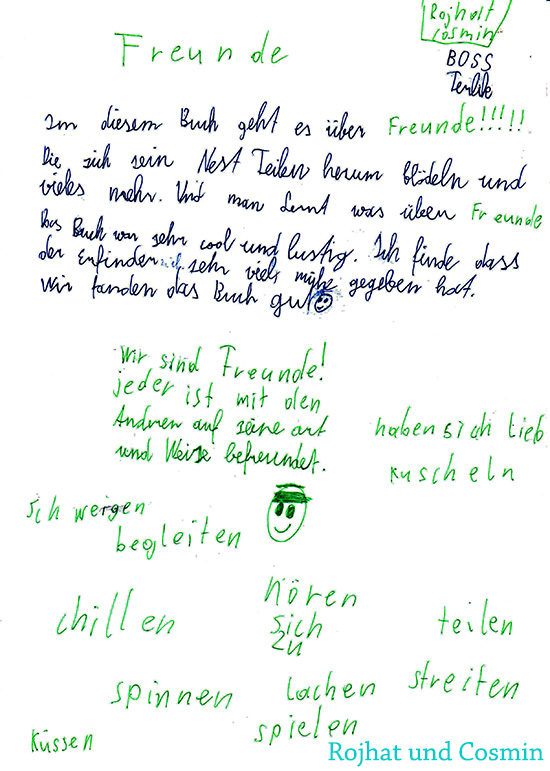 Freunde
Rojhat
Cosmin
BOSS
Im diesem Buch geht es über Freunde!!!!!
Die sich sein Nest Teilen herum blödeln und
vieles mehr. Und man Lernt was über Freunde
Das Buch war sehr cool und lustig. Ich finde dass
der Erfinder sich sehr viels mühe gegeben hat.
Wir fanden das Buch gut
Wir sind Freunde!
jeder ist mit den
Andren auf seine art
und Weise befreundet.
haben sich lieb
kuscheln
sich weigen
begleiten
chillen
hören
sich
zu
teilen
spinnen
lachen
streiten
spielen
küssen
Rojhat und Cosmin